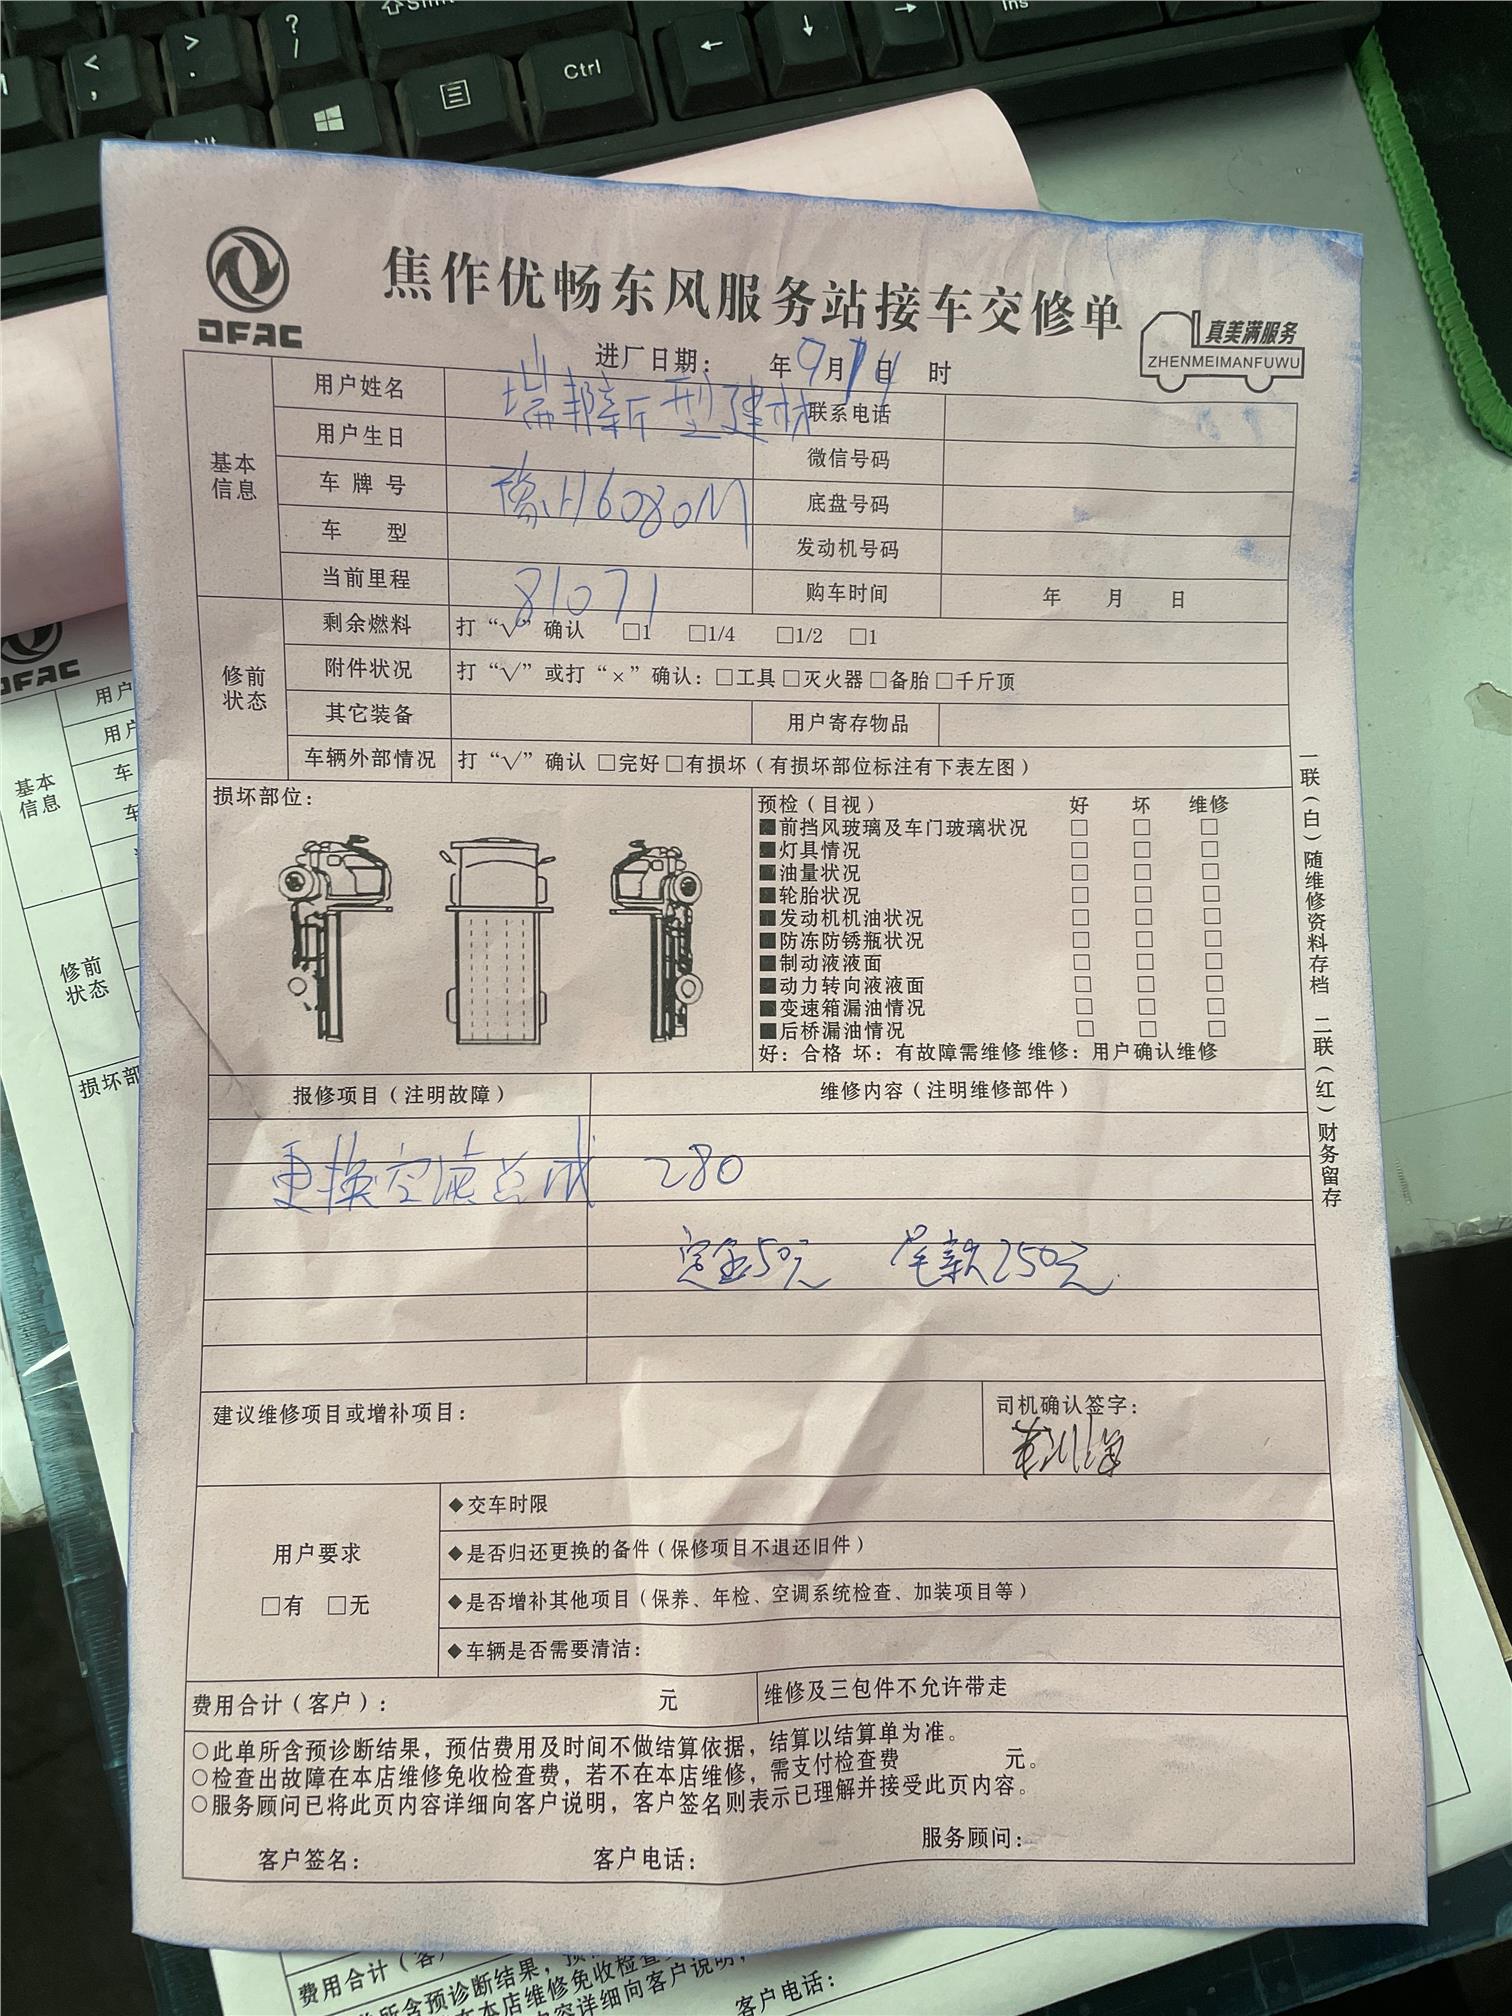 Shift
?
/
>
.
<
,
Ctrl
←
↓
→
Ins
DFAC
焦作优畅东风服务站接车交修单
真美满服务
ZHENMEIMANFUWU
进厂日期： 年9月14日 时
基本信息
用户姓名 瑞邦新型建材 联系电话
用户生日 微信号码
车牌号 豫H6080M 底盘号码
车 型 发动机号码
当前里程 81071 购车时间 年 月 日
修前状态
剩余燃料 打“√”确认 □1 □1/4 □1/2 □1
附件状况 打“√”或打“×”确认：□工具□灭火器□备胎□千斤顶
其它装备 用户寄存物品
车辆外部情况 打“√”确认 □完好□有损坏（有损坏部位标注有下表左图）
损坏部位：
预检（目视） 好 坏 维修
■前挡风玻璃及车门玻璃状况 □ □ □
■灯具情况 □ □ □
■油量状况 □ □ □
■轮胎状况 □ □ □
■发动机机油状况 □ □ □
■防冻防锈瓶状况 □ □ □
■制动液液面 □ □ □
■动力转向液液面 □ □ □
■变速箱漏油情况 □ □ □
■后桥漏油情况 □ □ □
好：合格 坏：有故障需维修 维修：用户确认维修
一联（白）随维修资料存档 二联（红）财务留存
报修项目（注明故障） 维修内容（注明维修部件）
更换空滤总成 280
定金50元 尾款250元
建议维修项目或增补项目：
司机确认签字：
用户要求
□有 □无
◆交车时限
◆是否归还更换的备件（保修项目不退还旧件）
◆是否增补其他项目（保养、年检、空调系统检查、加装项目等）
◆车辆是否需要清洁：
费用合计（客户）： 元 维修及三包件不允许带走
○此单所含预诊断结果，预估费用及时间不做结算依据，结算以结算单为准。
○检查出故障在本店维修免收检查费，若不在本店维修，需支付检查费 元。
○服务顾问已将此页内容详细向客户说明，客户签名则表示已理解并接受此页内容。
客户签名： 客户电话： 服务顾问：
DFAC
用户
用户
基本信息
车
车
修前状态
损坏部
费用合计（客
所含预诊断结果，预
本店维修免收检查
容详细向客户说明，
客户电话：